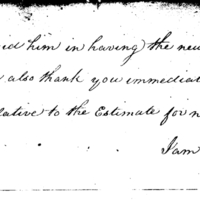 id him in having the new
also thank you immediat
lative to the Estimate for n
I am